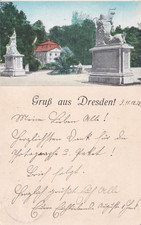 Gruß aus Dresden!
Meine lieben Alle!
Herzlichsten Dank für die
Photographie & Paket!
Brief folgt.
Herzlich grüßt Euch Alle
Eure